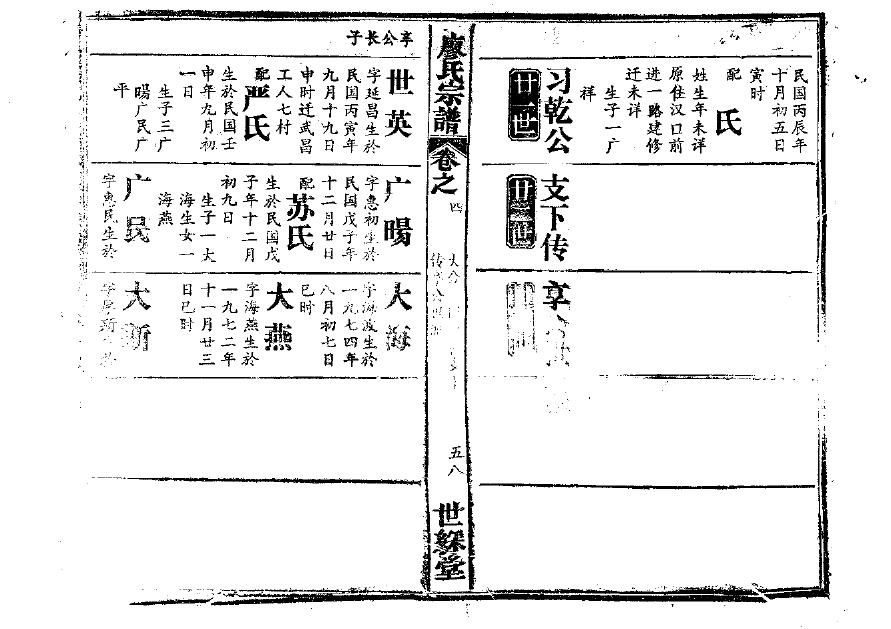 民国丙辰年
十月初五日
寅时
配 氏
姓生年未详
原住汉口前
进一路建修
迁未详
生子一广
祥
习乾公
支下传
享
廿一世
廿二世
廖氏宗譜
卷之
四
五八
世綵堂
享公长子
世英
字延昌生於
民国丙寅年
九月十九日
申时迁武昌
工人七村
配 严氏
生於民国壬
申年九月初
一日
生子三广
暘广民广
平
广暘
字惠初生於
民国戊子年
十二月廿日
配 苏氏
生於民国戊
子年十二月
初九日
生子一大
海生女一
海燕
广民
字惠民生於
大海
字海波生於
一九七四年
八月初七日
巳时
大燕
字海燕生於
一九七二年
十一月廿三
日巳时
大新